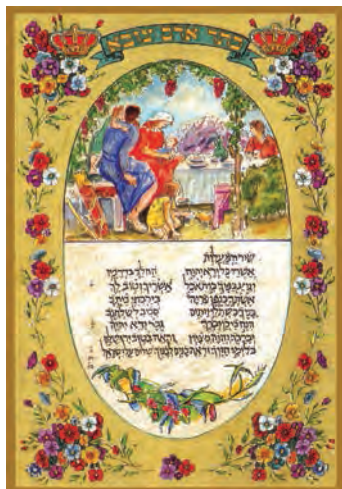 כתר ארם צובא
שיר המעלות
אשרי כל ירא יהוה ההלך בדרכיו
יגיע כפיך כי תאכל אשריך וטוב לך
אשתך כגפן פריה בירכתי ביתך
בניך כשתלי זיתים סביב לשלחנך
הנה כי כן יברך גבר ירא יהוה
יברכך יהוה מציון וראה בטוב ירושלם
כל ימי חייך וראה בנים לבניך שלום על ישראל